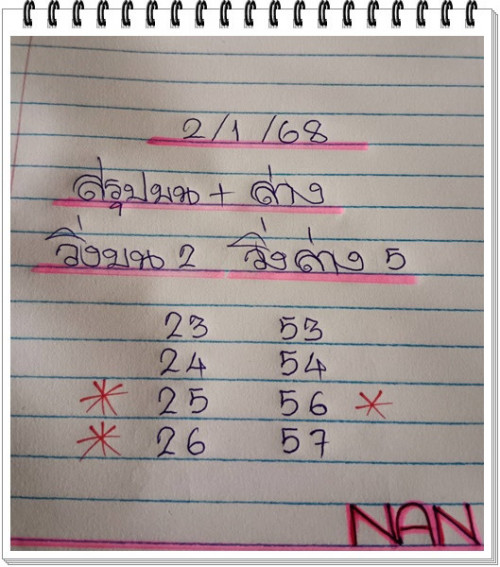 2/1/68
สรุปบน + ล่าง
วิ่งบน 2 วิ่งล่าง 5
23 53
24 54
25 56
26 57
NAN